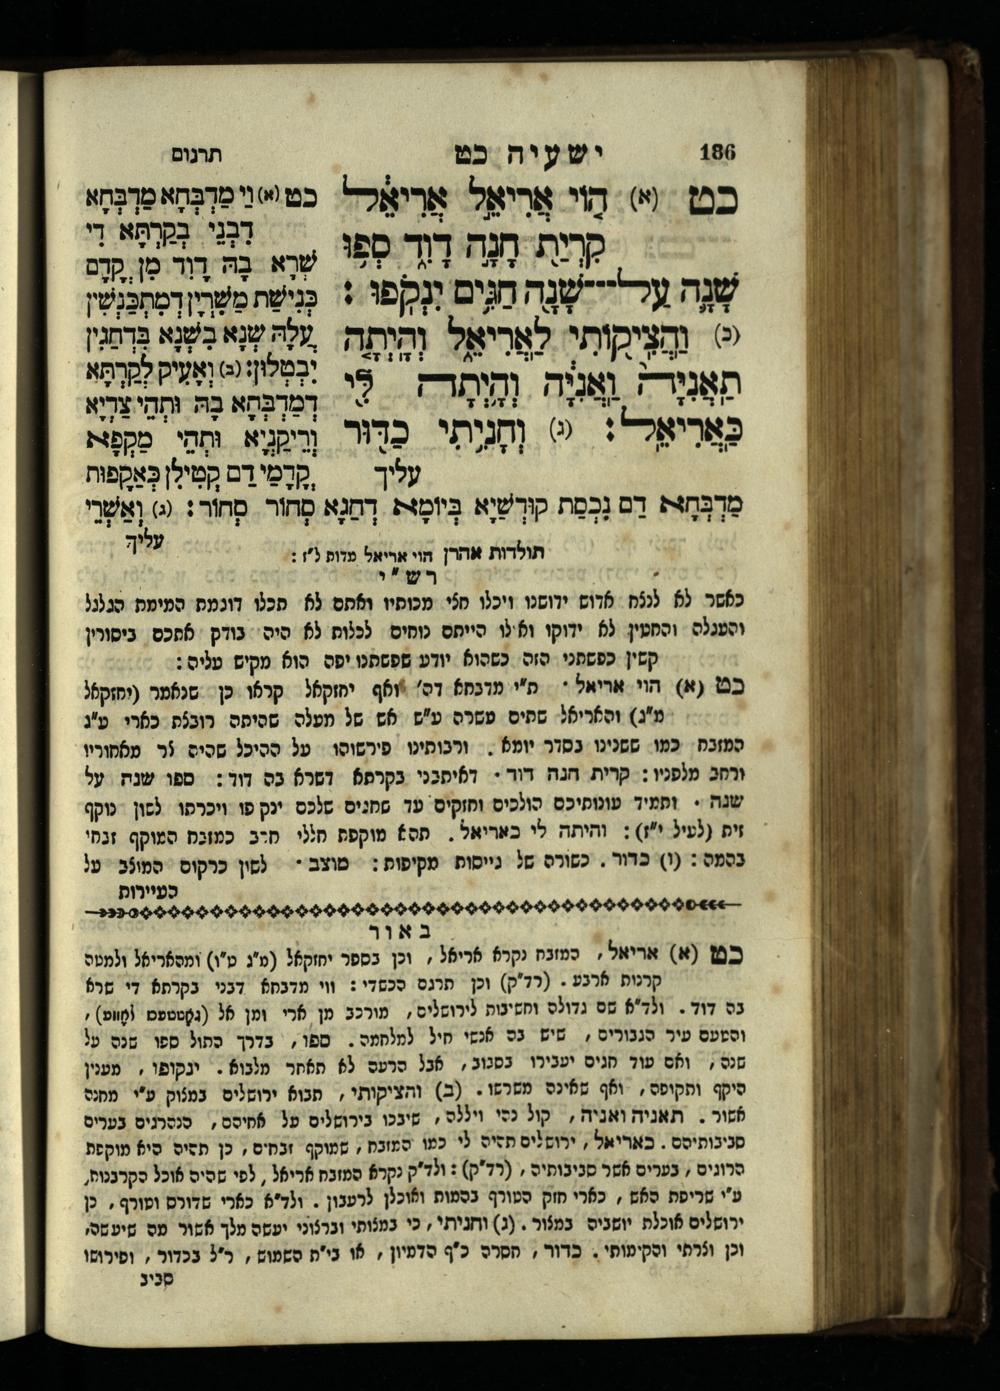 186
ישעיה כט
תרגום
כט (א) הוֹי אֲרִיאֵל אֲרִיאֵל
קִרְיַת חָנָה דָוִד סְפוּ
שָׁנָה עַל־שָׁנָה חַגִּים יִנְקֹפוּ:
(ב) וַהֲצִיקוֹתִי לַאֲרִיאֵל וְהָיְתָה
תַאֲנִיָּה וַאֲנִיָּה וְהָיְתָה לִּי
כַּאֲרִיאֵל: (ג) וְחָנִיתִי כַדּוּר
עליך
כט (א) וַי מַדְבְּחָא מַדְבְּחָא
דִבְנֵי בְקַרְתָּא דִי
שְׁרָא בָהּ דָוִד מִן קֳדָם
כְּנִישַׁת מַשִׁרְיָן דְמִתְכַּנְשִׁין
עֲלָהּ שְׁנָא בִשְׁנָא בִּדְחַגִין
יִבְטְלוּן: (ב) וְאָעִיק לְקַרְתָּא
דְמַדְבְּחָא בָהּ וּתְהֵי צַדְיָא
וְרֵיקַנְיָא וּתְהֵי מַקְפָא
קֳדָמַי דַם קְטִילִן כְּאַקָפוּת
מַדְבְּחָא דַם נִכְסַת קוּרְשַׁיָא בְּיוֹמָא דְחַגָא סְחוֹר סְחוֹר: (ג) וְאַשְׁרֵי
עליך
תולדות אהרן הוי אריאל מדות ל"ז:
רש"י
כאשר לא לנצח אדוש ידושנו ויכלו חצי מכותיו ואתם לא תכלו דוגמת המימת הגלגל
והעגלה והחטין לא ידוקו ואילו הייתם נוחים לכלות לא היה בודק אתכם ביסורין
קשין כפשתני הזה כשהוא יודע שפשתנו יפה הוא מקיש עליה:
כט (א) הוי אריאל. ת"י מדבחא דה' ואף יחזקאל קראו כן שנאמר (יחזקאל
מ"ג) והאריאל שתים עשרה ע"ש אש של מעלה שהיתה רובצת כארי ע"ג
המזבח כמו ששנינו בסדר יומא. ורבותינו פירשוהו על ההיכל שהיה צר מאחוריו
ורחב מלפניו: קרית חנה דוד. דאיתבני בקרתא דשרא בה דוד: ספו שנה על
שנה. ותמיד עונותיכם הולכים וחזקים עד שחגים שלכם ינקפו ויכרתו לשון נוקף
זית (לעיל י"ז): והיתה לי כאריאל. תהא מוקפת חללי חרב כמזבח המוקף זבחי
בהמה: (ו) כדור. כשורה של גייסות מקיפות: מוצב. לשון כרקום המוצב על
העיירות
באור
כט (א) אריאל, המזבח נקרא אריאל, וכן בספר יחזקאל (מ"ג ט"ו) ומהאריאל ולמטה
קרנות ארבע. (רד"ק) וכן תרגם הכשדי: ווי מדבחא דבני בקרתא די שרא
בה דוד. ולד"א שם גדולה וחשיבות לירושלים, מורכב מן ארי ומן אל (גאָטטעס לאָווע),
והטעם עיר הגבורים, שיש בה אנשי חיל למלחמה. ספו, בדרך התול ספו שנה על
שנה, ואם עוד חגים יעבירו בסבוב, אבל הרעה לא תאחר מלבוא. ינקופו, מענין
היקף ותקופה, ואף שאינה משרשו. (ב) והציקותי, תבוא ירושלים במצוק ע"י מחנה
אשור. תאניה ואניה, קול נהי ויללה, שיבכו בירושלים על אחיהם, הנהרגים בערים
סביבותיהם. כאריאל, ירושלים תהיה לי כמו המזבח, שמוקף זבחים, כן תהיה היא מוקפת
הרוגים, בערים אשר סביבותיה, (רד"ק): ולד"ק נקרא המזבח אריאל, לפי שהיה אוכל הקרבנות,
ע"י שריפת האש, כארי חזק הטורף בהמות ואוכלן לרעבון. ולד"א כארי שדורס וטורף, כן
ירושלים אוכלת יושביה במצור. (ג) וחניתי, כי במצותי וברצוני יעשה מלך אשור מה שיעשה,
וכן וצרתי והקימותי. כדור, חסרה כ"ף הדמיון, או בי"ת השמוש, ר"ל בכדור, ופירושו
סביב